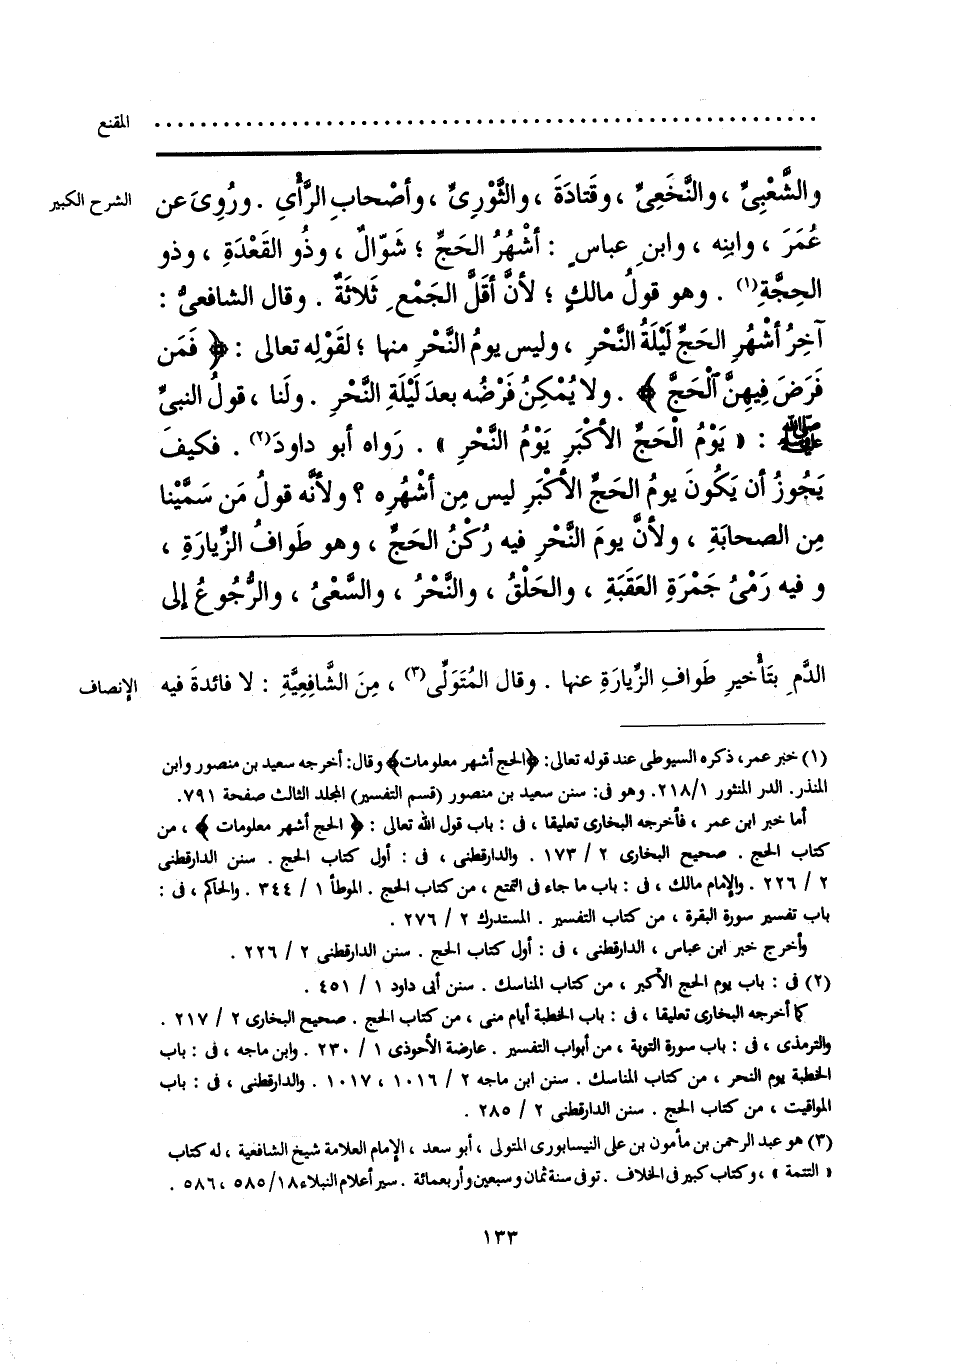 المقنع ............................................................
الشرح الكبير والشَّعْبِىِّ ، والنَّخَعِىِّ ، وقَتادَةَ ، والثَّوْرِىِّ ، وأصْحابِ الرَّأْىِ . ورُوِىَ عن
عُمَرَ ، وابنِه ، وابنِ عباسٍ : أشْهُرُ الحَجِّ ؛ شَوّالٌ ، وذُو القَعْدَةِ ، وذو
الحِجَّةِ(١) . وهو قولُ مالكٍ ؛ لأنَّ أقَلَّ الجَمْعِ ثَلاثَةٌ . وقال الشافعىُّ :
آخِرُ أشْهُرِ الحَجِّ لَيْلَةُ النَّحْرِ ، وليس يومُ النَّحْرِ منها ؛ لقَوْلِه تعالى : ﴿ فَمَن
فَرَضَ فِيهِنَّ ٱلْحَجَّ ﴾ . ولا يُمْكِنُ فَرْضُه بعدَ لَيْلَةِ النَّحْرِ . ولَنا ، قولُ النبىِّ
ﷺ : « يَوْمُ الْحَجِّ الأكْبَرِ يَوْمُ النَّحْرِ » . رَواه أبو داودَ(٢) . فكيفَ
يَجُوزُ أن يَكُونَ يومُ الحَجِّ الأكْبَرِ ليس مِن أشْهُرِه ؟ ولأنَّه قولُ مَن سَمَّيْنا
مِن الصحابَةِ ، ولأنَّ يومَ النَّحْرِ فيه رُكْنُ الحَجِّ ، وهو طَوافُ الزِّيارَةِ ،
و فيه رَمْىُ جَمْرَةِ العَقَبَةِ ، والحَلْقُ ، والنَّحْرُ ، والسَّعْىُ ، والرُّجُوعُ إلى
الإنصاف الدَّمِ بتَأْخيرِ طَوافِ الزِّيارَةِ عنها . وقال المُتَوَلِّى(٣) ، مِنَ الشَّافِعِيَّةِ : لا فائدةَ فيه
(١) خبر عمر، ذكره السيوطى عند قوله تعالى: ﴿الحج أشهر معلومات﴾ وقال: أخرجه سعيد بن منصور وابن
المنذر. الدر المنثور ٢١٨/١. وهو فى: سنن سعيد بن منصور (قسم التفسير) المجلد الثالث صفحة ٧٩١.
أما خبر ابن عمر ، فأخرجه البخارى تعليقا ، فى : باب قول الله تعالى : ﴿ الحج أشهر معلومات ﴾ ، من
كتاب الحج . صحيح البخارى ٢ / ١٧٣ . والدارقطنى ، فى : أول كتاب الحج . سنن الدارقطنى
٢ / ٢٢٦ . والإمام مالك ، فى : باب ما جاء فى التمتع ، من كتاب الحج . الموطأ ١ / ٣٤٤ . والحاكم ، فى :
باب تفسير سورة البقرة ، من كتاب التفسير . المستدرك ٢ / ٢٧٦ .
وأخرج خبر ابن عباس ، الدارقطنى ، فى : أول كتاب الحج . سنن الدارقطنى ٢ / ٢٢٦ .
(٢) فى : باب يوم الحج الأكبر ، من كتاب المناسك . سنن أبى داود ١ / ٤٥١ .
كما أخرجه البخارى تعليقا ، فى : باب الخطبة أيام منى ، من كتاب الحج . صحيح البخارى ٢ / ٢١٧ .
والترمذى ، فى : باب سورة التوبة ، من أبواب التفسير . عارضة الأحوذى ١ / ٢٣٠ . وابن ماجه ، فى : باب
الخطبة يوم النحر ، من كتاب المناسك . سنن ابن ماجه ٢ / ١٠١٦ ، ١٠١٧ . والدارقطنى ، فى : باب
المواقيت ، من كتاب الحج . سنن الدارقطنى ٢ / ٢٨٥ .
(٣) هو عبد الرحمن بن مأمون بن على النيسابورى المتولى ، أبو سعد ، الإمام العلامة شيخ الشافعية ، له كتاب
« التتمة » ، وكتاب كبير فى الخلاف . توفى سنة ثمان وسبعين وأربعمائة . سير أعلام النبلاء ٥٨٥/١٨ ، ٥٨٦ .
١٣٣